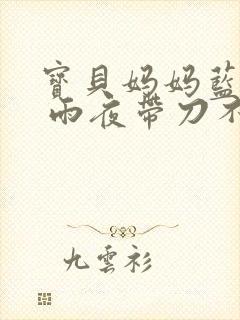 寶貝妈妈藍
雨夜帶刀不
九雲衫